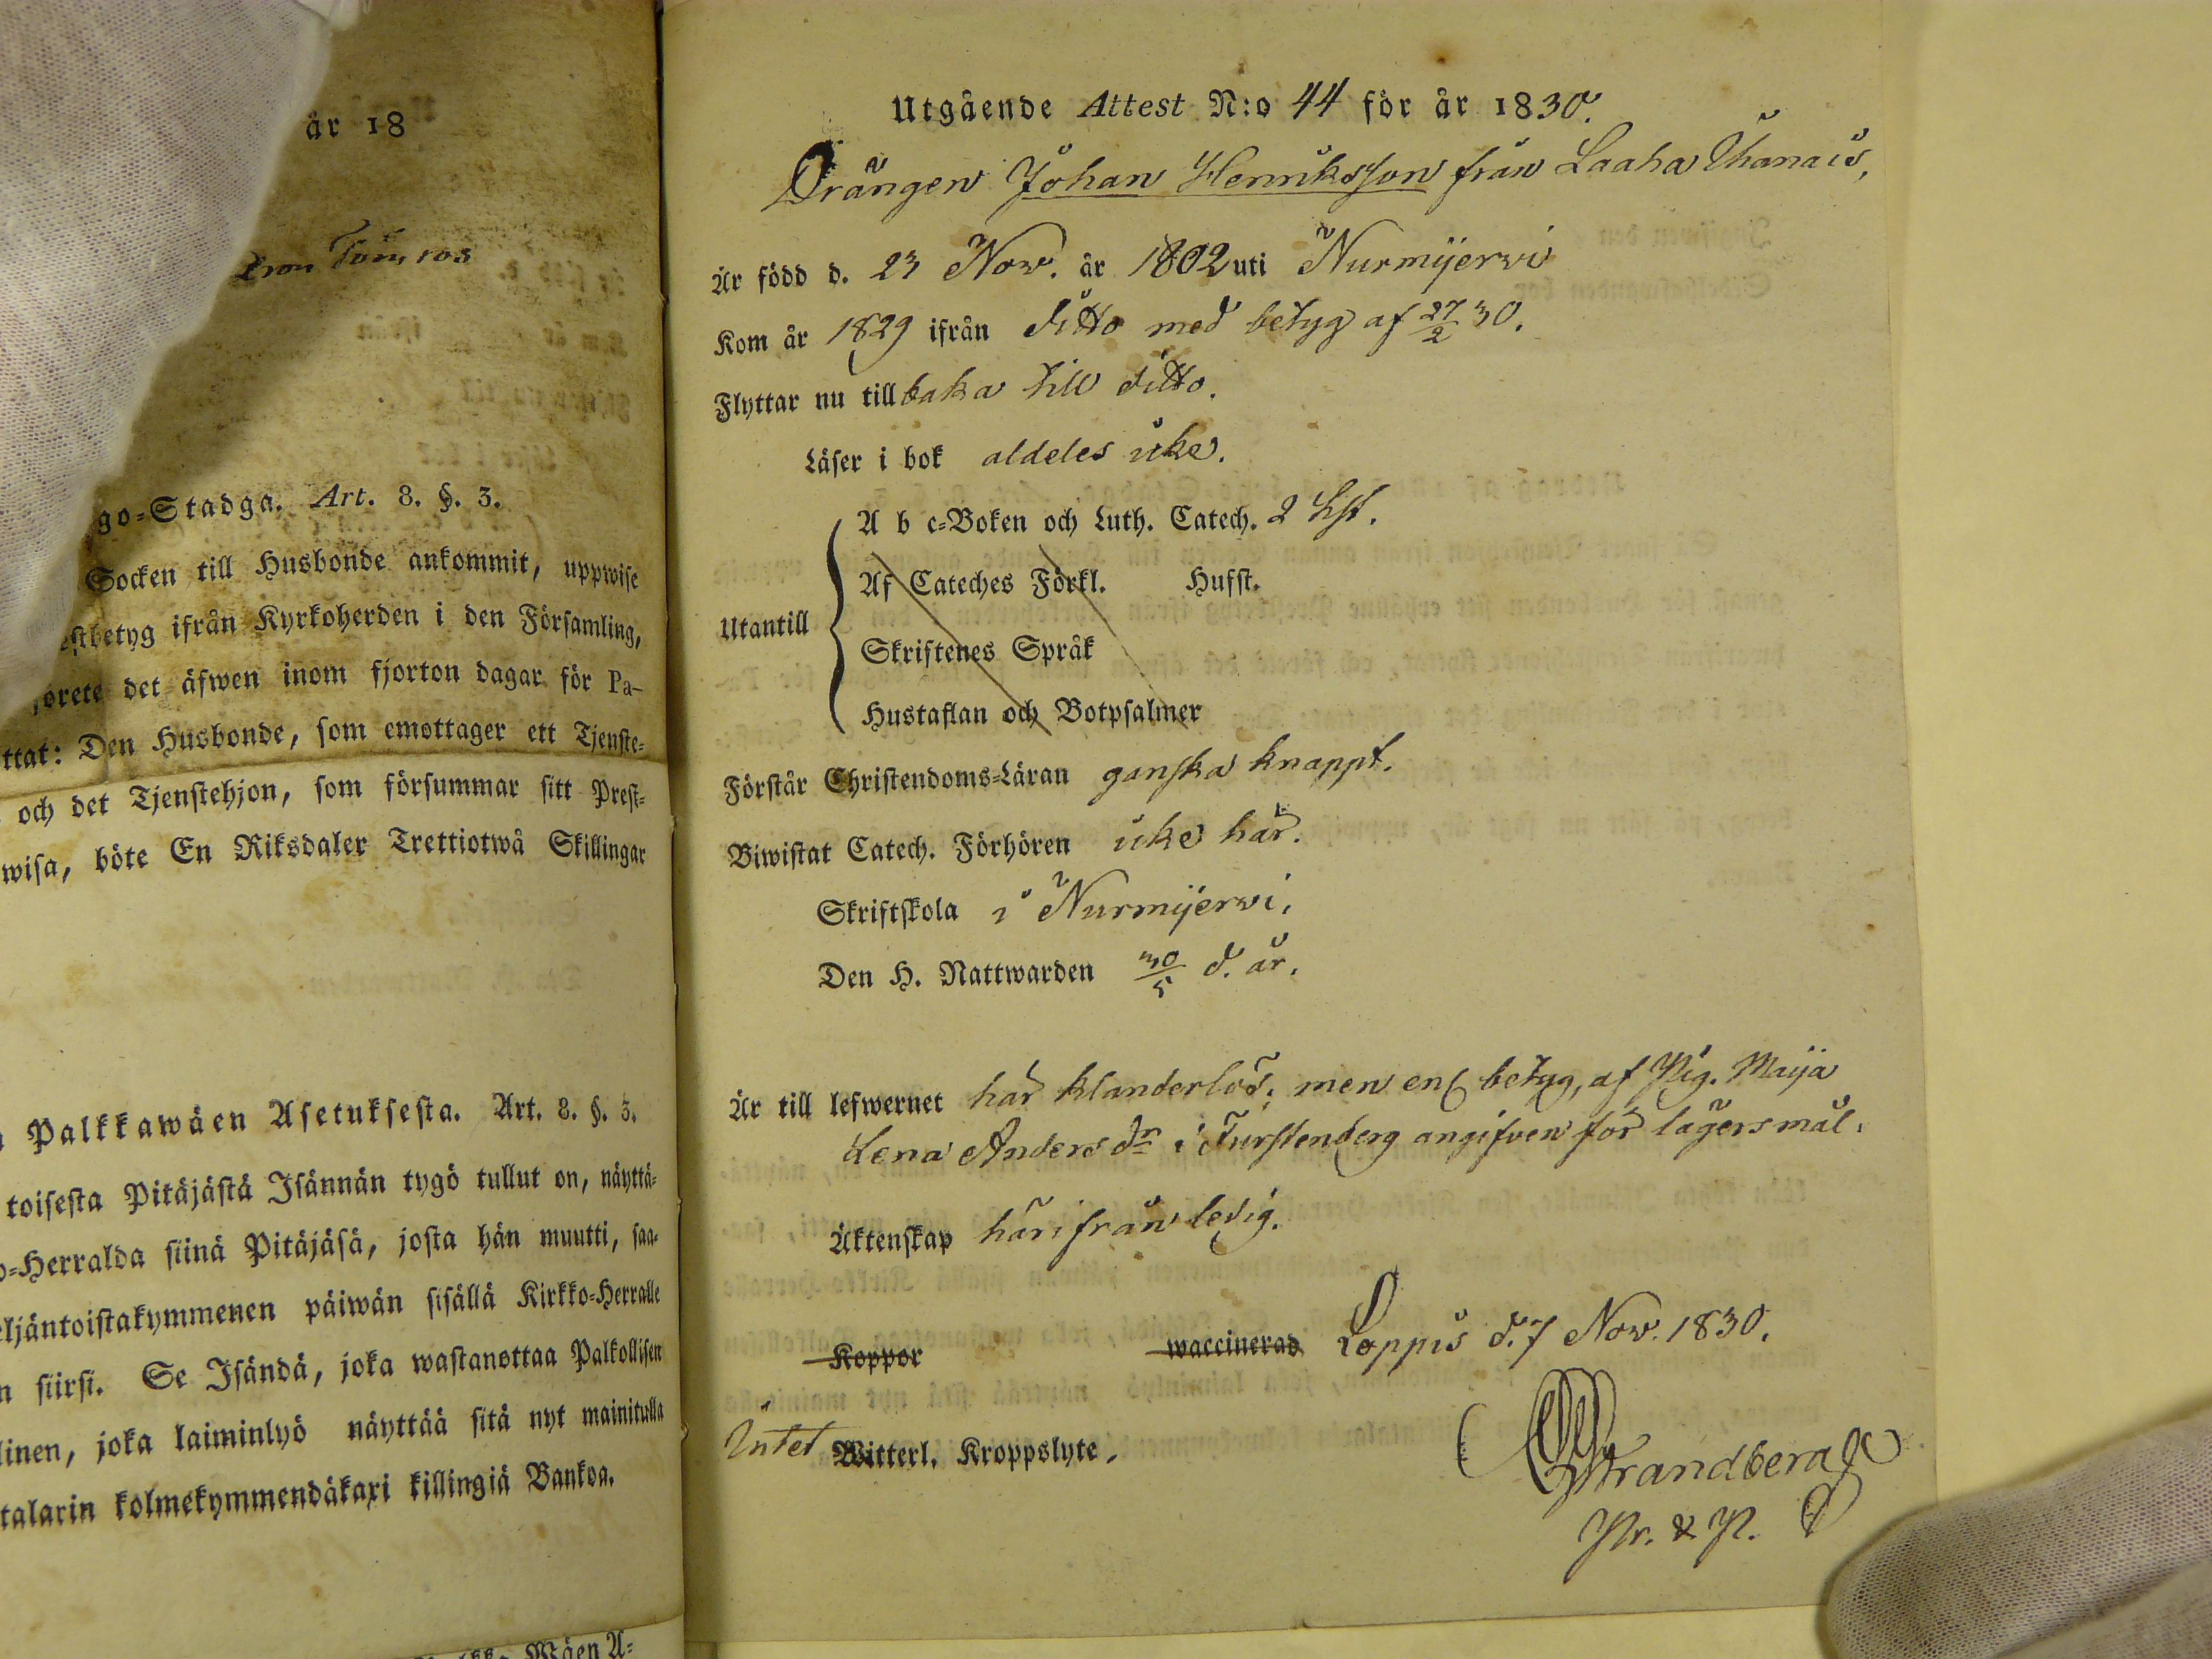 år 18
go-Stadga. Art. 8. §. 3.
Socken till Husbonde ankommit, uppwise
estbetyg ifrån Kyrkoherden i den Församling,
förete det äfwen inom fjorton dagar för Pa-
ttat: Den Husbonde, som emottager ett Tjenste-
och det Tjenstehjon, som försummar sitt Prest-
wisa, böte En Riksdaler Trettiotwå Skillingar
Palkkawäen Asetuksesta. Art. 8. §. 3.
toisesta Pitäjästä Isännän tygö tullut on, näyttä-
o-Herralda siinä Pitäjäsä, josta hän muutti, saa-
eljäntoistakymmenen päiwän sisällä Kirkko-Herralle
n siirsi. Se Isändä, joka wastanottaa Palkollisen
linen, joka laiminlyö näyttää sitä nyt mainitulla
talarin kolmekymmendäkaxi killingiä Bankoa.
Wäen A-
Utgående Attest N:o 44 för år 1830.
Drängen Johan Henriksson från Laaha Uhanais,
Är född d. 23 Nov. år 1802 uti Nurmijerwi
Kom år 1829 ifrån ditto med betyg af 27/2 30.
Flyttar nu tillbaka till ditto.
Läser i bok aldeles icke.
A b c-Boken och Luth. Catech. 2 Hst.
Af Cateches Förkl. Hufst.
Utantill
Skriftenes Språk
Hustaflan och Botpsalmer
Förstår Christendoms-Läran ganska knappt.
Biwistat Catech. Förhören icke här.
Skriftskola i Nurmijerwi.
Den H. Nattwarden 30/5 d. år.
Är till lefwernet här klanderlös; men enl betyg, af Pig. Maija
Lena Anders dr i Furstenberg angifven för lägersmål.
Äktenskap härifrån ledig.
Koppor waccinerad Loppis d. 7 Nov. 1830.
Intet Witterl. Kroppslyte.
Strandberg
Pr. & P.